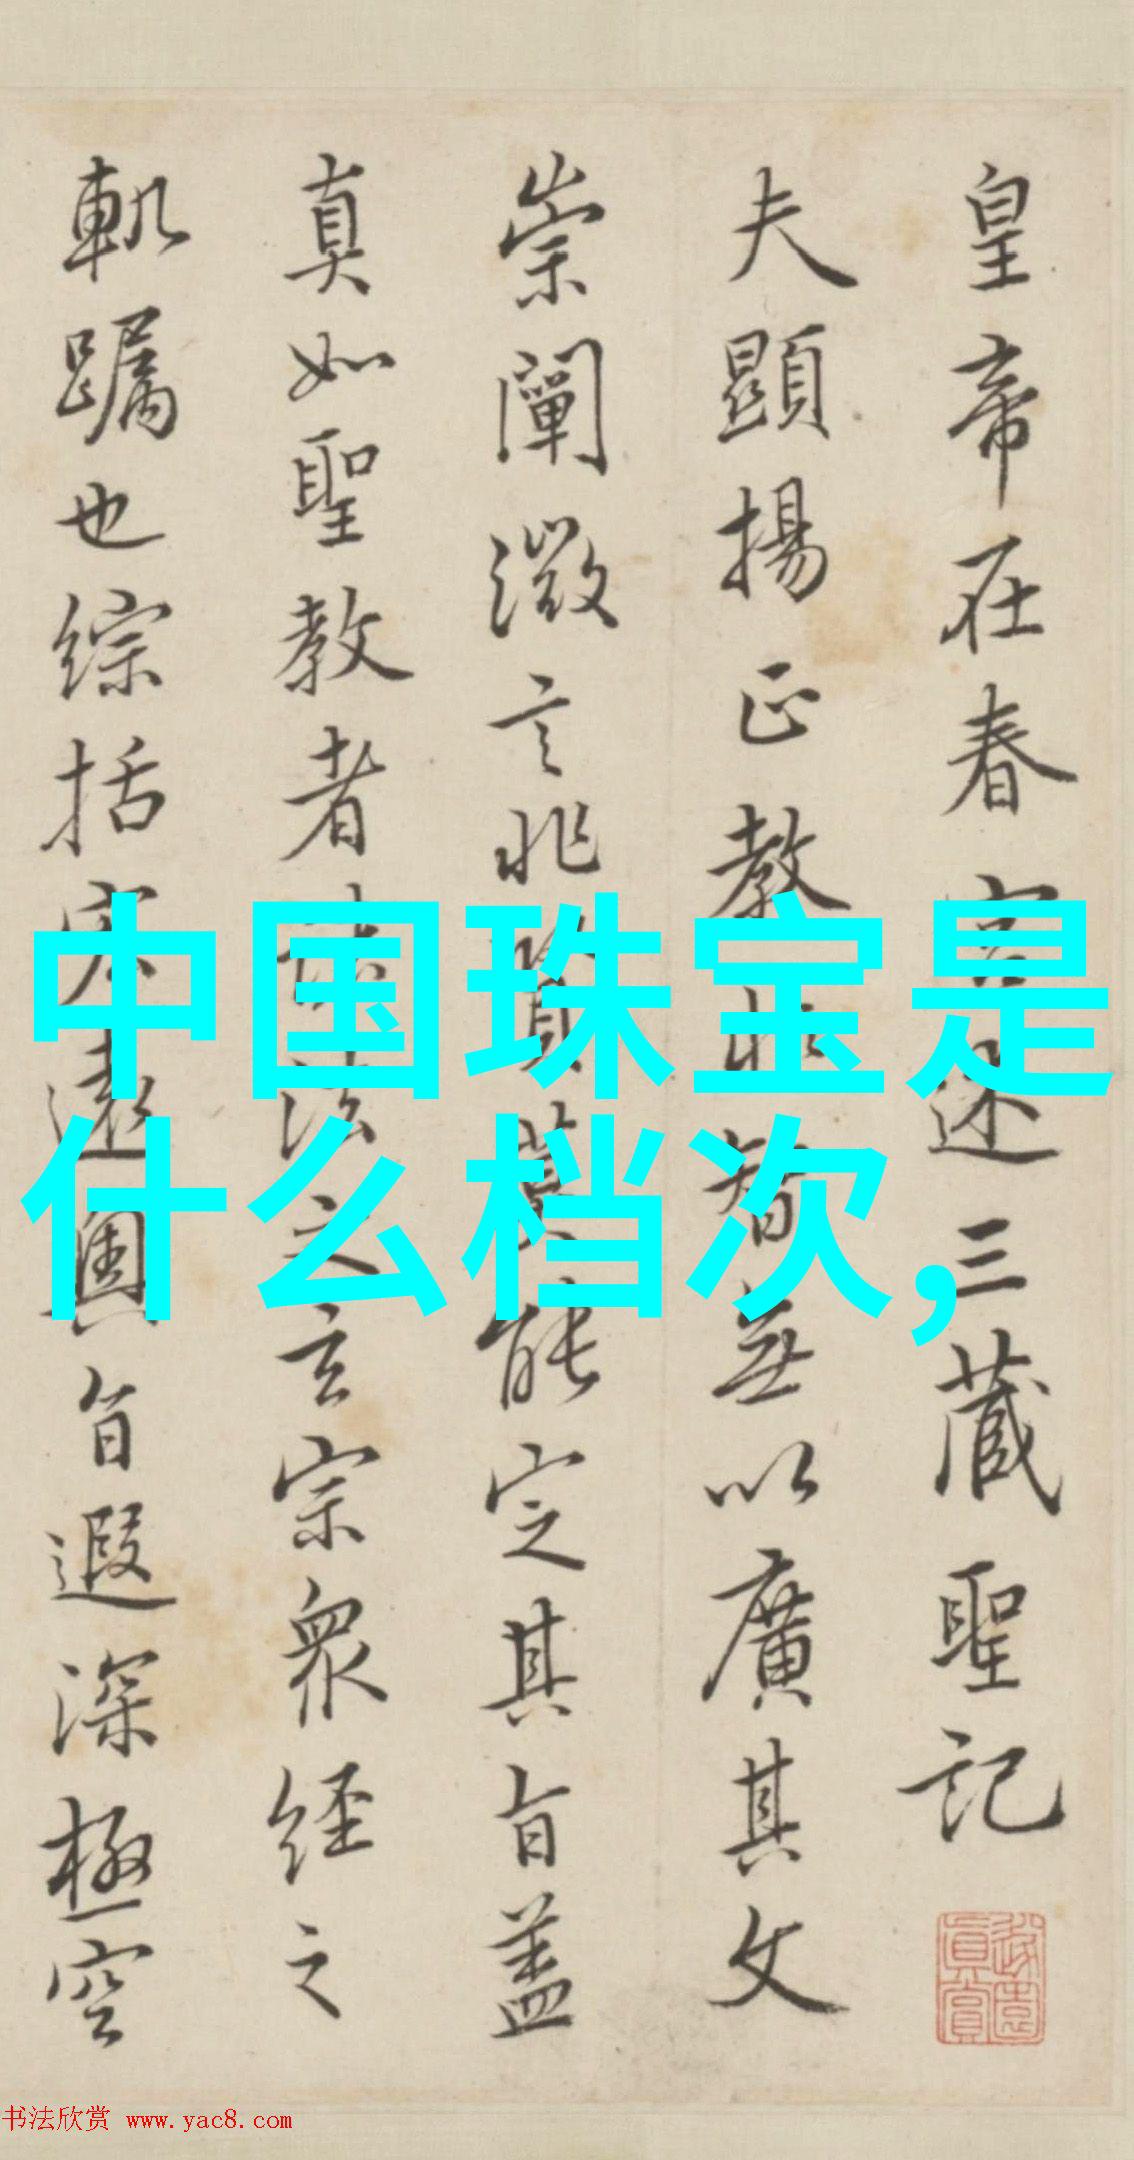 皇帝在春宮述三藏聖記
夫顯揚正教非智無以廣其文
崇闡微言非賢莫能定其旨蓋
真如聖教者諸法之玄宗眾經之
軌躅也綜括宏遠奧旨遐深極空
中国珠宝是
什么档次,
书法欣赏 www.yac8.com